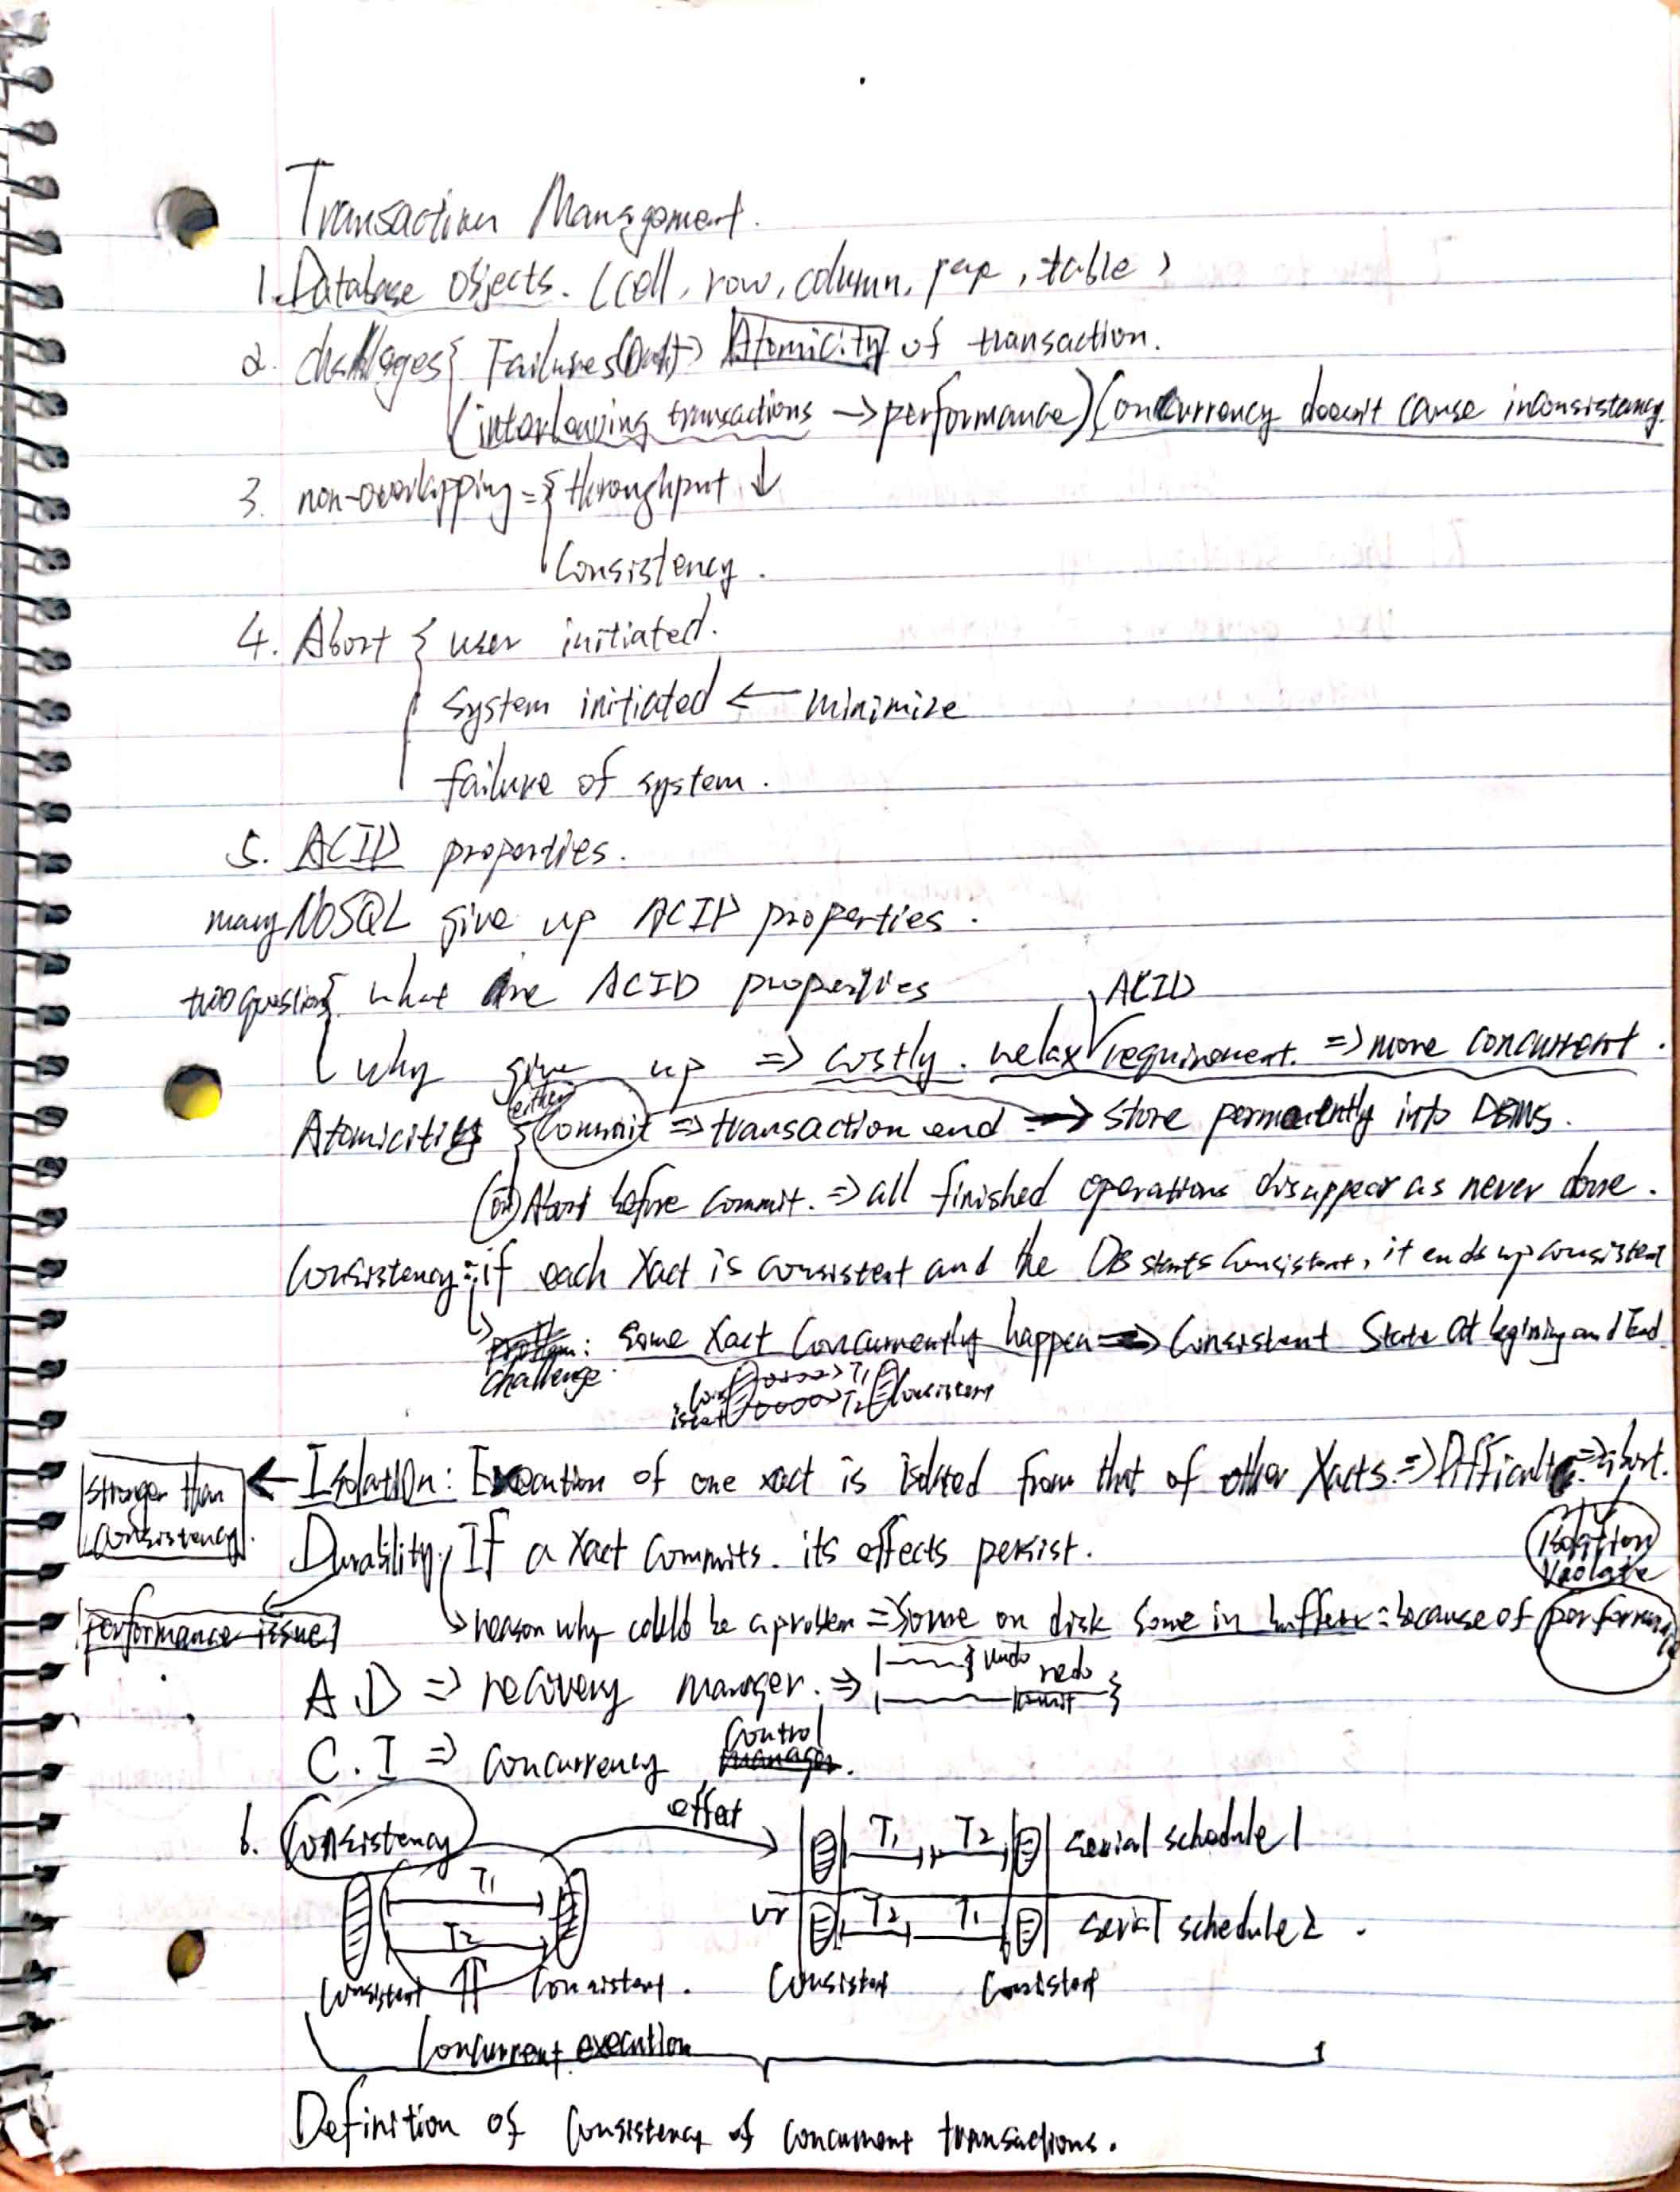 Transaction Management.
1. Database objects. (cell, row, column, page, table)
2. challenges { Failures → Atomicity of transaction.
(interleaving transactions → performance) Concurrency doesn't cause inconsistency.
3. non-overlapping = { throughput ↓
Consistency.
4. Abort { user initiated.
system initiated ← minimize
failure of system.
5. ACID properties.
many NoSQL give up ACID properties.
two questions { what are ACID properties
ACID
why give up => costly. relax requirement. => more concurrent.
either
Atomicity { Commit => transaction end => store permanently into DBMS.
(or) Abort before commit. => all finished operations disappear as never done.
Consistency: if each Xact is consistent and the DB starts consistent, it ends up consistent
↳ problem: some Xact Concurrently happen => Consistent State at begining and End.
challenge.
T1
consistent T2 Consistent
stronger than consistency. ← Isolation: Execution of one xact is isolated from that of other Xacts. => Difficult => abort.
isolation violate
Durability: If a Xact commits. its effects persist.
performance issue
↳ reason why could be a problem => some on disk some in buffer: because of performance
A.D => recovery manager. => undo redo
commit
C.I => concurrency manager.
control
6. Consistency
effect
T1 T2 serial schedule 1
T1
T2
or T2 T1 serial schedule 2.
Consistent Consistent. Consistent Consistent
Concurrent execution
Definition of Consistency of concurrent transactions.